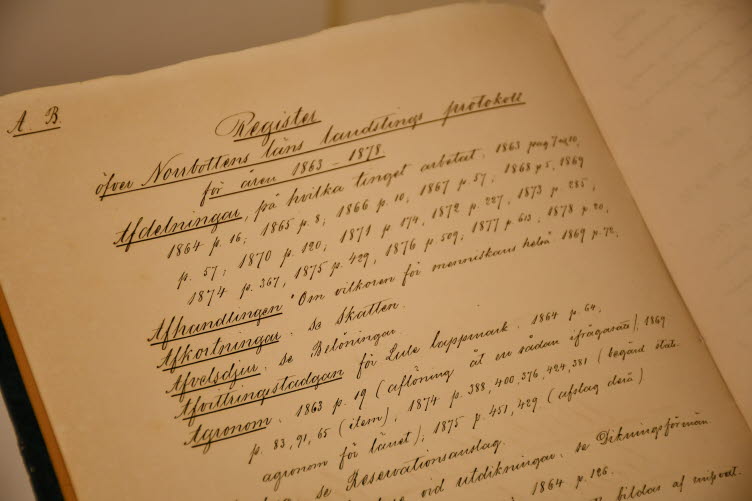 A. B.
Register
öfver Norrbottens läns landstings protokoll
för åren 1863 – 1878
Afdelningar, på hvilka tinget arbetat, 1863 pag 7 o. 10,
1864 p. 16; 1865 p. 8; 1866 p. 10; 1867 p. 57; 1868 p. 5, 1869
p. 57; 1870 p. 120; 1871 p. 174, 1872 p. 227, 1873 p. 285,
1874 p. 367, 1875 p. 429, 1876 p. 509; 1877 p. 613; 1878 p. 20,
Afhandlingen "Om vilkoren för menniskans helsa" 1869 p. 72,
Afkortningar, se Skatten.
Afvelsdjur, se Belöningar.
Afvittringsstadgan för Lule lappmark, 1864 p. 64,
Agronom, 1863 p. 19 (aflöning åt en sådan ifrågasatt), 1869
p. 83, 91, 65 (item), 1874 p. 388, 400, 376, 424, 381 (begärd stats-
agronom för länet), 1875 p. 451, 429 (afslag derå)
se Reservationsanslag.
vid utdikningar, se Dikningsförmän
1864 p. 126.
bildas af